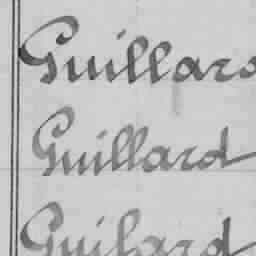 Guillard
Guillard
Guilard